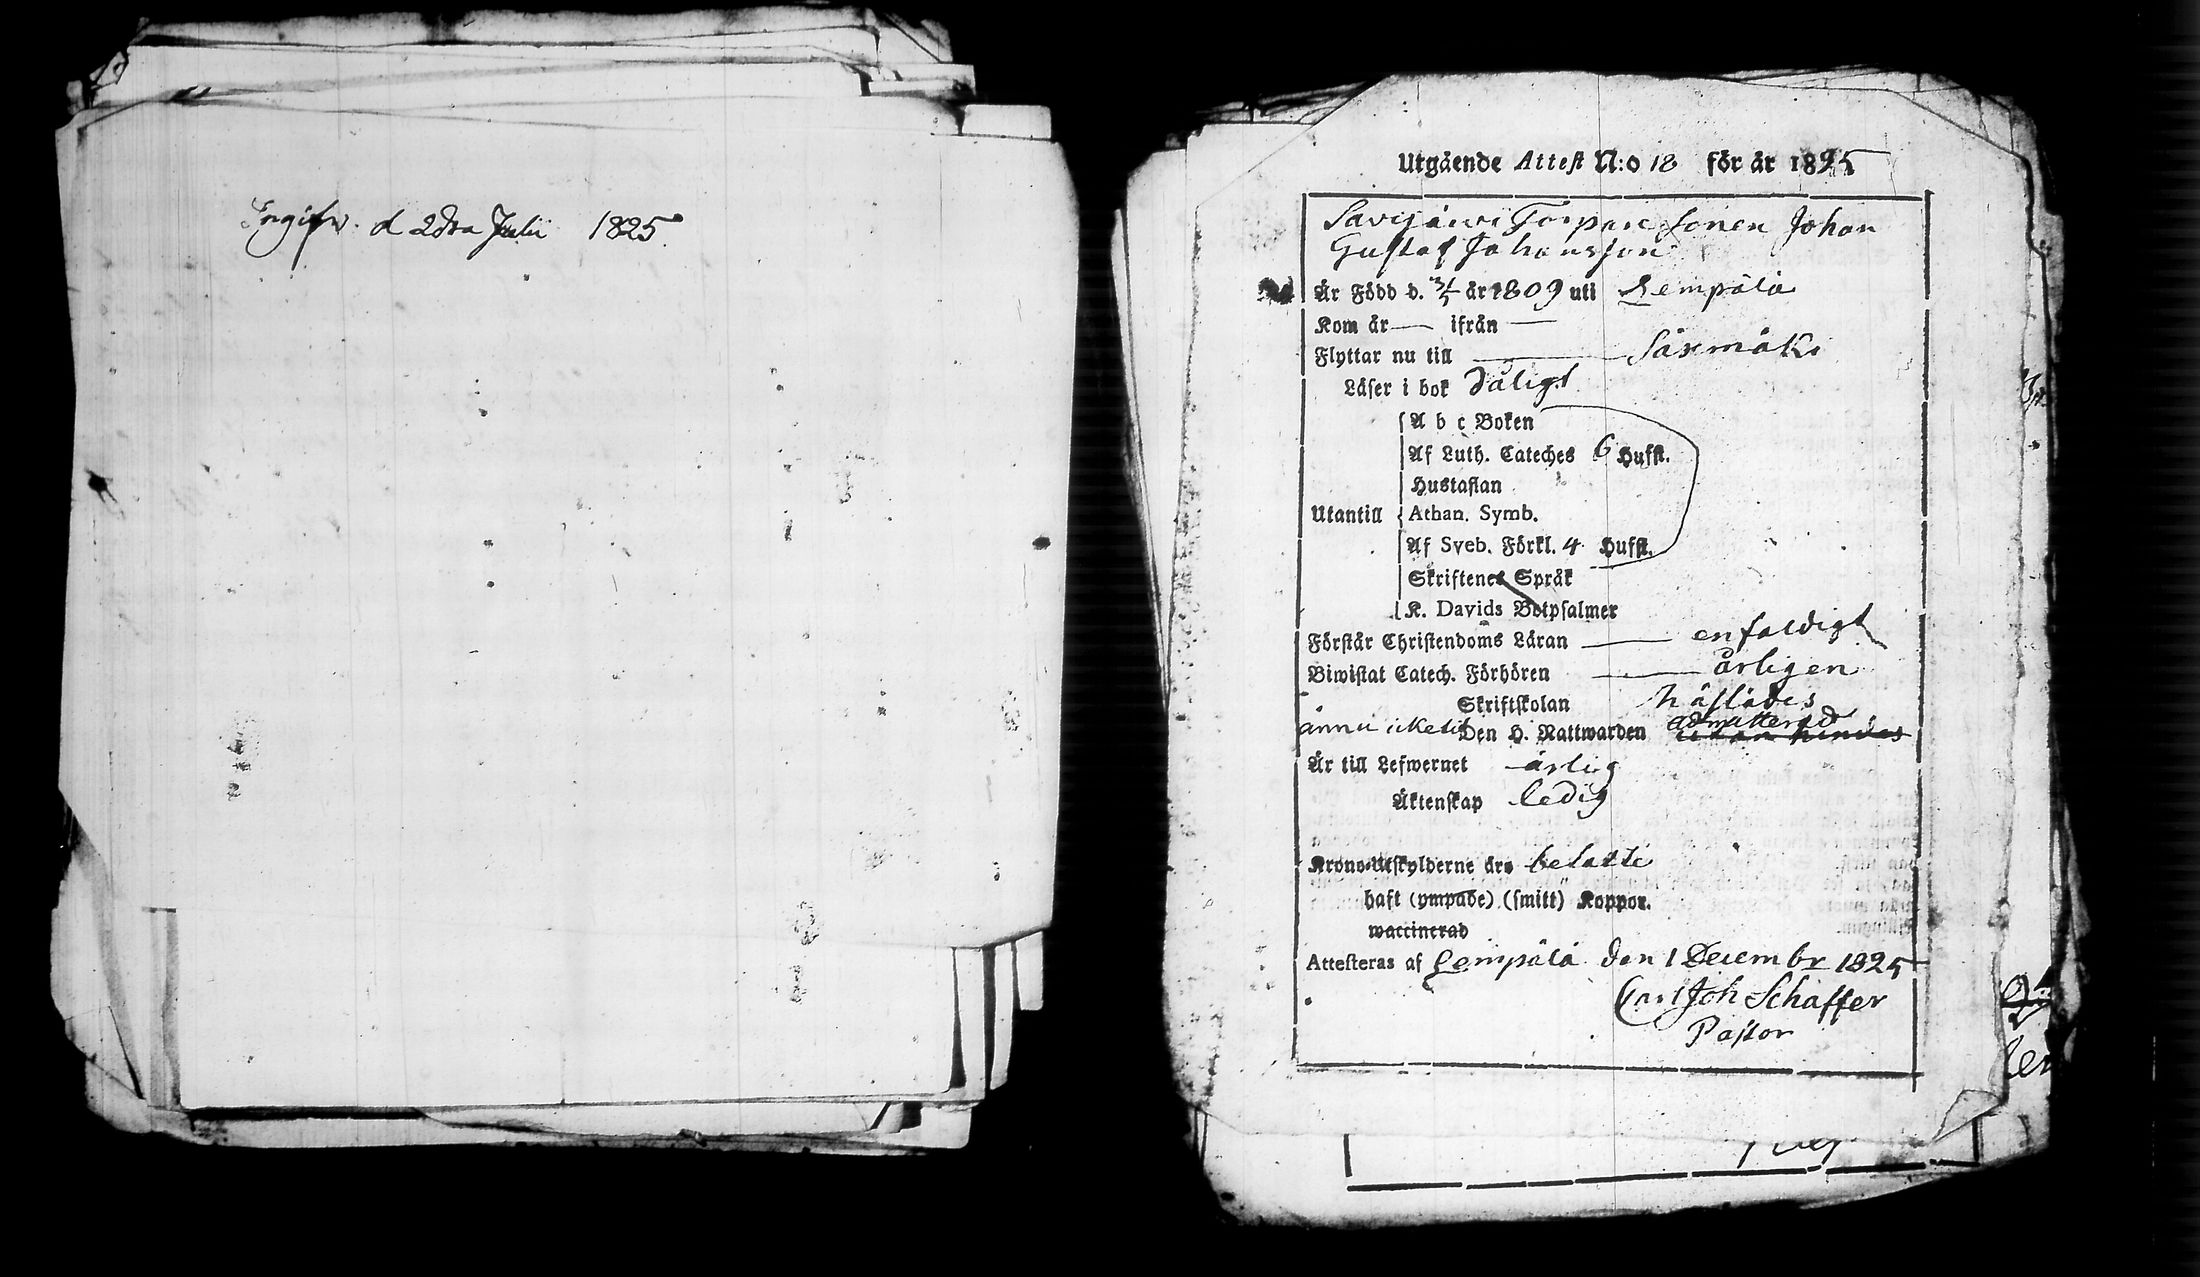 Ingifv. d 2dra Julii 1825.
Utgående Attest N:o 18 för år 1825
Savijärvi Torpare Sonen Johan
Gustaf Johansson
Är Född d. 3/5 år 1809 uti Lempälä
Kom år — ifrån —
Flyttar nu till — Säxmäki
Läser i bok dåligt
A b c Boken
Af Luth. Cateches 6 Hufst.
Hustaflan
Utantill Athan. Symb.
Af Sveb. Förkl. 4 Hufst.
Skriftenes Språk
K. Davids Botpsalmer
Förstår Christendoms Läran — enfaldigt
Biwistat Catech. Förhören — årligen
Skriftskolan
ännu icke Den H. Nattwarden admitterad utan hinder
Är till Lefwernet ärlig
Äktenskap ledig
Krono-Utskylderne äro betalte
haft (ympade) (smitt) Koppor.
waccinerad
Attesteras af Lempälä den 1 Decembr 1825
Carl Joh Schaffer
Pastor